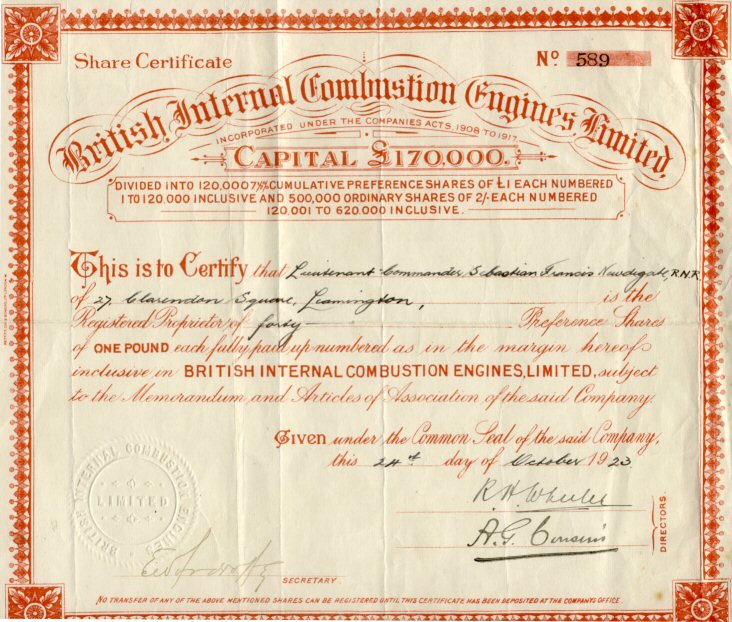 Share Certificate
No 589
British Internal Combustion Engines, Limited.
INCORPORATED UNDER THE COMPANIES ACTS, 1908 TO 1917.
CAPITAL £170,000.
DIVIDED INTO 120,000 7½% CUMULATIVE PREFERENCE SHARES OF £1 EACH NUMBERED
1 TO 120,000 INCLUSIVE AND 500,000 ORDINARY SHARES OF 2/- EACH NUMBERED
120,001 TO 620,000 INCLUSIVE.
This is to Certify that Lieutenant-Commander Sebastian Francis Newdegate, R.N.R.
of 27, Clarendon Square, Leamington, is the
Registered Proprietor of forty Preference Shares
of ONE POUND each fully paid up numbered as in the margin hereof
inclusive in BRITISH INTERNAL COMBUSTION ENGINES, LIMITED, subject
to the Memorandum and Articles of Association of the said Company.
Given under the Common Seal of the said Company,
this 24th day of October 1923
R. H. Wheeler
A. G. Cousins
DIRECTORS
BRITISH INTERNAL COMBUSTION ENGINES
LIMITED
SECRETARY
NO TRANSFER OF ANY OF THE ABOVE MENTIONED SHARES CAN BE REGISTERED UNTIL THIS CERTIFICATE HAS BEEN DEPOSITED AT THE COMPANY'S OFFICE